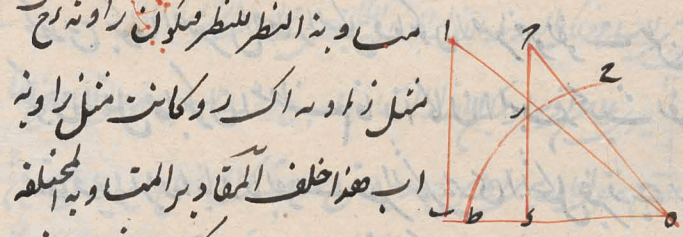 متساوية النظر للنظر فيكون زاوية ح
مثل زاوية اك د وكانت مثل زاوية
اب هذا خلف المقادير المتساوية المختلفة
ا ح
ح
ر
ب ط د ه